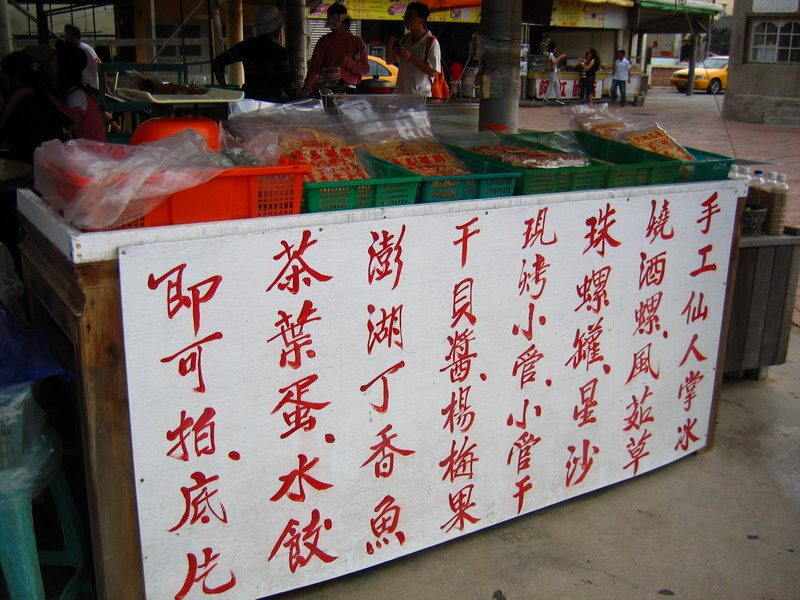 手工仙人掌冰
燒酒螺、風茹草
珠螺罐、星沙
現烤小管、小管干
干貝醬、楊梅果
澎湖丁香魚
茶葉蛋、水餃
即可拍、底片